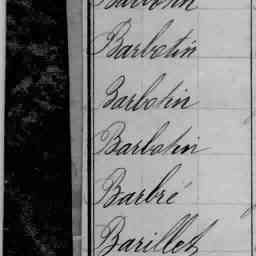 Barbotin
Barbotin
Barbotin
Barbotin
Barbré
Barillet